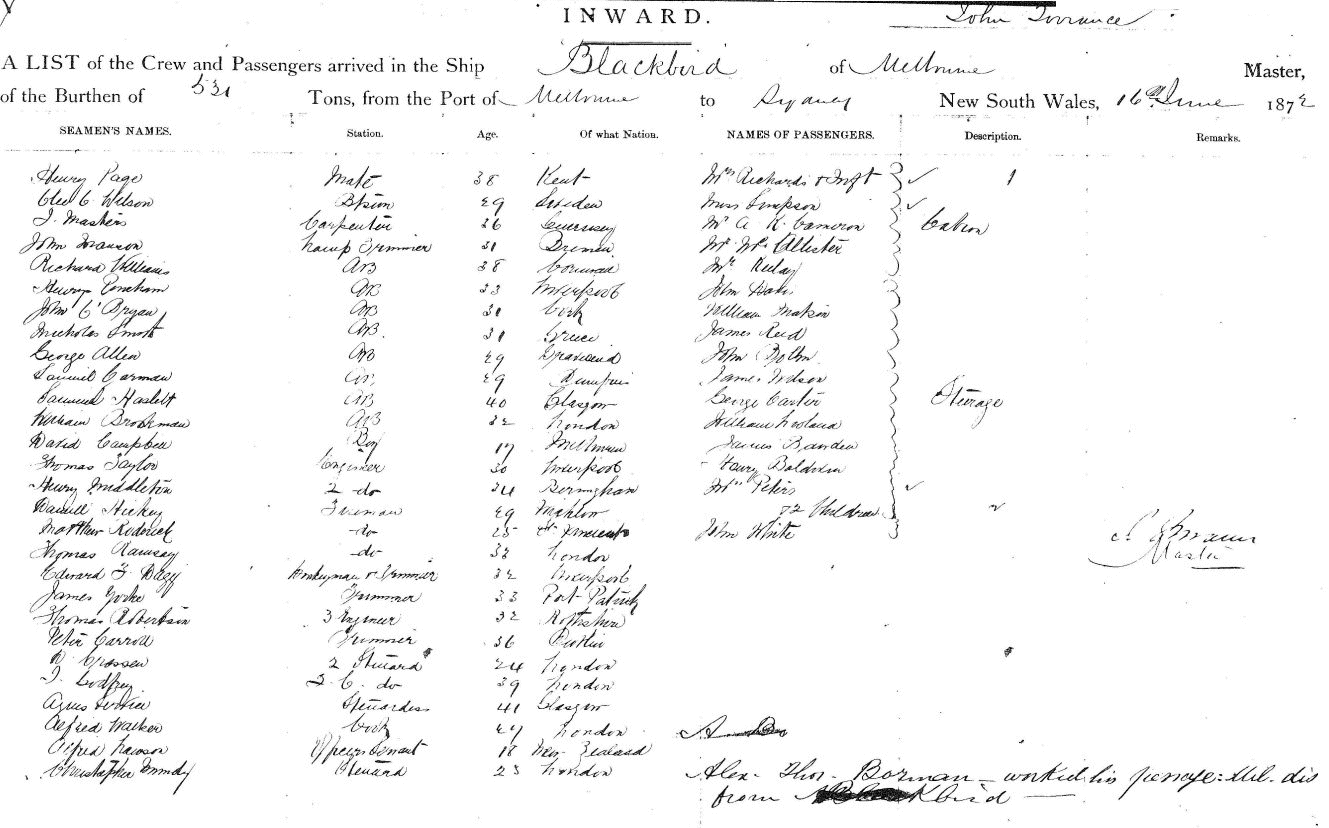 INWARD.
John Torrance
A LIST of the Crew and Passengers arrived in the Ship Blackbird of Melbourne Master,
of the Burthen of 531 Tons, from the Port of Melbourne to Sydney New South Wales, 16th June 1872
SEAMEN'S NAMES. Station. Age. Of what Nation. NAMES OF PASSENGERS. Description. Remarks.
Henry Page Mate 38 Kent Mrs Richards & Inft 1
Wilson 29 Sweden Miss Simpson
J. Masters Carpenter 26 Guernsey Mr A. K. Cameron Cabin
John Lamp Trimmer 31 Bremen Mr McAllister
Richard Williams AB 38 Cornwall Mr
Henry AB 33 Liverpool John
John O'Bryan AB 31 Cork William Makin
Nicholas AB 31 Greece James Reid
George Allen AB 29 Gravesend John
Samuel Carman AB 29 Dumfries James Wilson
Samuel Haslett AB 40 Glasgow George Carter Sterage
William Brookman AB 32 London William
David Campbell Boy 17 Melbourne James
Thomas Taylor Engineer 30 Liverpool Henry Baldwin
Henry Middleton 2 do 34 Mrs Peters
Daniell Hickey Fireman 29 & 2 Children 2
Matthew Roderick do 25 St Vincent John White
Thomas Ramsay do 32 London Master
Edward F. Donkeyman & Trimmer 32 Liverpool
James Yorke Trimmer 33 Port Patrick
Thomas Robertson 3 Engineer 32
Peter Carroll Trimmer 36
Crossen 2 Steward 24 London
J. Godfrey do 39 London
Stewardess 41 Glasgow
Alfred Walker Cook 27 London
Alfred Lawson 18 New Zealand
Christopher Steward 23 London
Alex. Thos. Borman – worked his passage: dis
from Blackbird